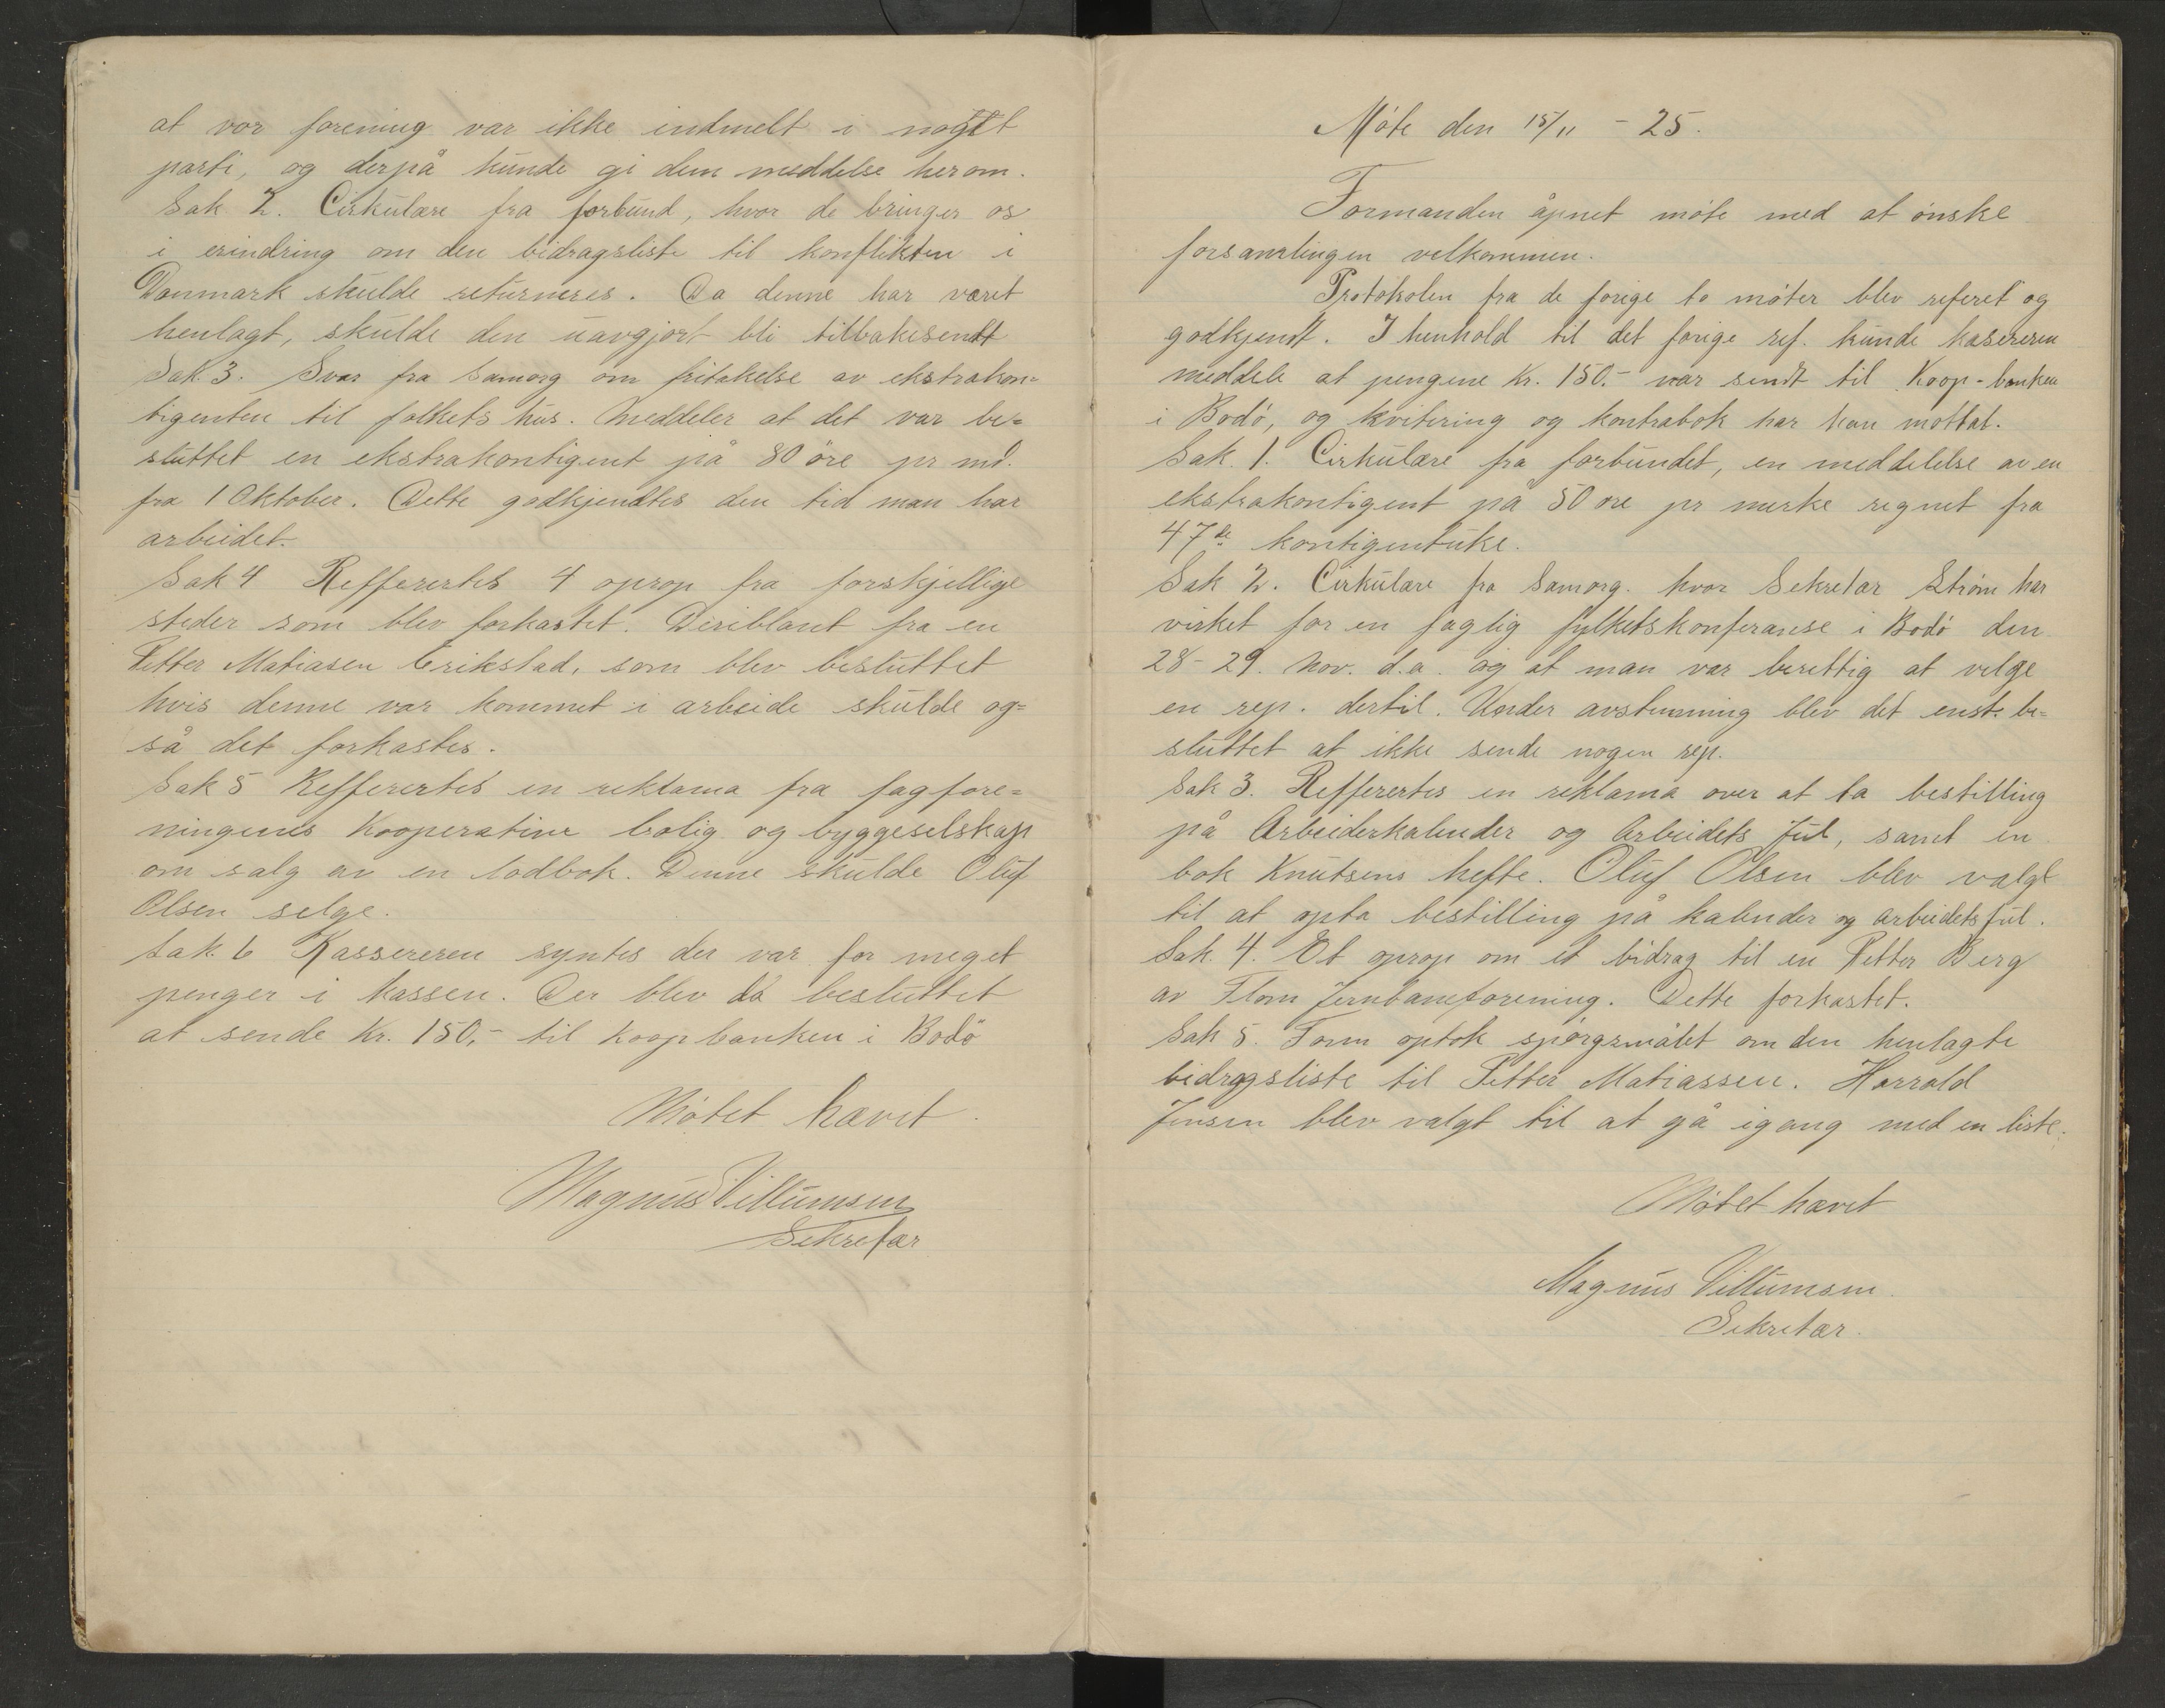 at vor forening var ikke indmelt i nogit
parti, og derpå kunde gi dem meddelse herom.
Sak 2. Cirkulære fra forbund, hvor de bringer os
i erindring om den bidragsliste til konflikten i
Danmark skulde returneres. Da denne har været
henlagt, skulde den uavgjort bli tilbakesendt
Sak 3. Svar fra Samorg om fritakelse av ekstrakon=
tigenten til folkets hus. Meddeler at det var be=
sluttet en ekstrakontigent på 80 øre pr md.
fra 1 Oktober. Dette godkjendtes den tid man har
arbeidet.
Sak 4 Refferertes 4 oprop fra forskjellige
steder som blev forkastet. Deriblant fra en
Petter Matiasen Erikstad, som blev besluttet
hvis denne var kommet i arbeide skulde og=
så det forkastes.
Sak 5 Refferertes en reklama fra fagfore=
ningenes Kooperative bolig og byggeselskap
om salg av en lodbok. Denne skulde Oluf
Olsen selge.
Sak. 6 Kassereren syntes der var for meget
penger i kassen. Der blev da besluttet
at sende Kr. 150,- til Koopbanken i Bodø
Møtet hævet.
Magnus Villumsen
Sekretær
Møte den 15/11 - 25.
Formanden åpnet møte med at ønske
forsamlingen velkommen.
Protokolen fra de forige to møter blev referet og
godkjendt. I henhold til det forige ref. kunde kasereren
meddele at pengene Kr. 150.- var sendt til Koop-banken
i Bodø, og kvitering og kontrabok har han mottat.
Sak. 1. Cirkulære fra forbundet, en meddelelse av en
ekstrakontigent på 50 øre pr merke regnet fra
47de kontigentuke.
Sak 2. Cirkulære fra Samorg. hvor Sekretær Strøm har
virket for en faglig fylketskonferanse i Bodø den
28-29. Nov. d.a. og at man var berettig at velge
en rep. dertil. Under avstemning blev det enst. be=
sluttet at ikke sende nogen rep.
Sak 3. Refferertes en reklama over at ta bestilling
på Arbeiderkalender og Arbeidets Jul, samt en
bok Knutsens hefte. Oluf Olsen blev valgt
til at opta bestilling på kalender og arbeidets jul.
Sak. 4. Et oprop om et bidrag til en Petter Berg
av Flom Jernbaneforening. Dette forkastet.
Sak 5. Form optok spørgsmålet om den henlagte
bidragsliste til Petter Matiassen. Harrald
Jensen blev valgt til at gå igang med en liste.
Møtet hævet
Magnus Villumsen.
Sekretær.